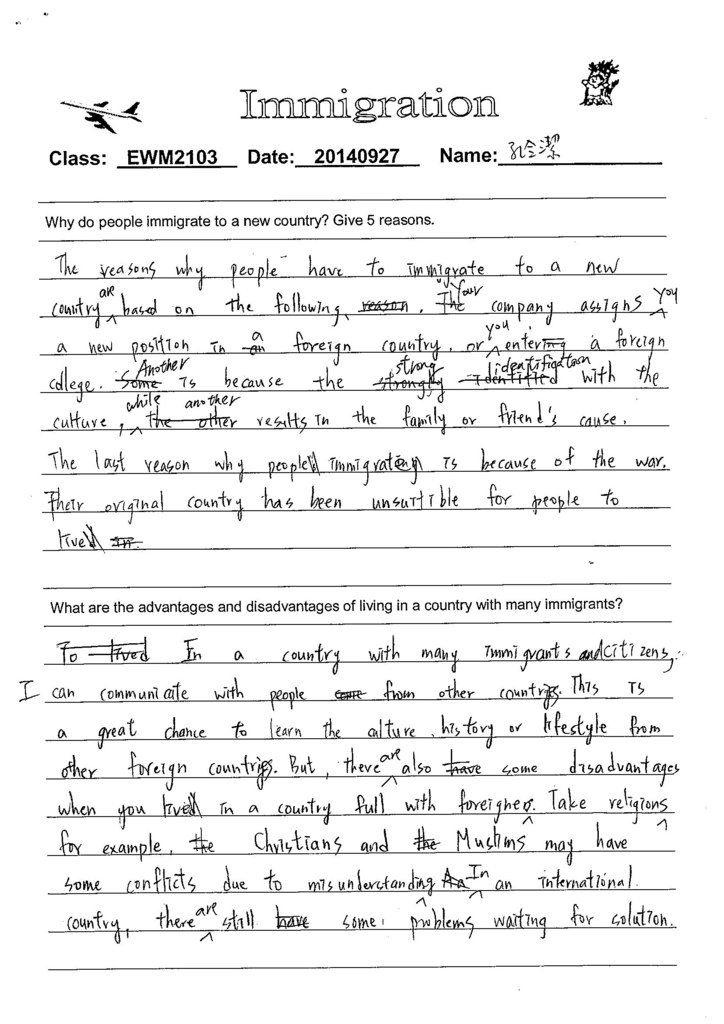 Immigration
Class: EWM2103 Date: 20140927 Name: 孔令潔
Why do people immigrate to a new country? Give 5 reasons.
The reasons why people have to immigrate to a new
are Your You
country based on the following reason. The company assigns
a you
a new position in an foreign country, or entering a foreign
Another strong identification
college. Some is because the strongly identified with the
while another
culture, the other results in the family or friend's cause.
The last reason why people immigrating is because of the war.
Their original country has been unsuitible for people to
lived in.
What are the advantages and disadvantages of living in a country with many immigrants?
To lived In a country with many immigrants and citizens,
I can communicate with people come from other countries. This is
a great chance to learn the culture, history or lifestyle from
are
other foreign countries. But, there also have some disadvantages
when you lived in a country full with foreigners. Take religions
for example, the Christians and the Muslims may have
In
some conflicts due to misunderstanding an international
are
country, there still have some problems waiting for solution.